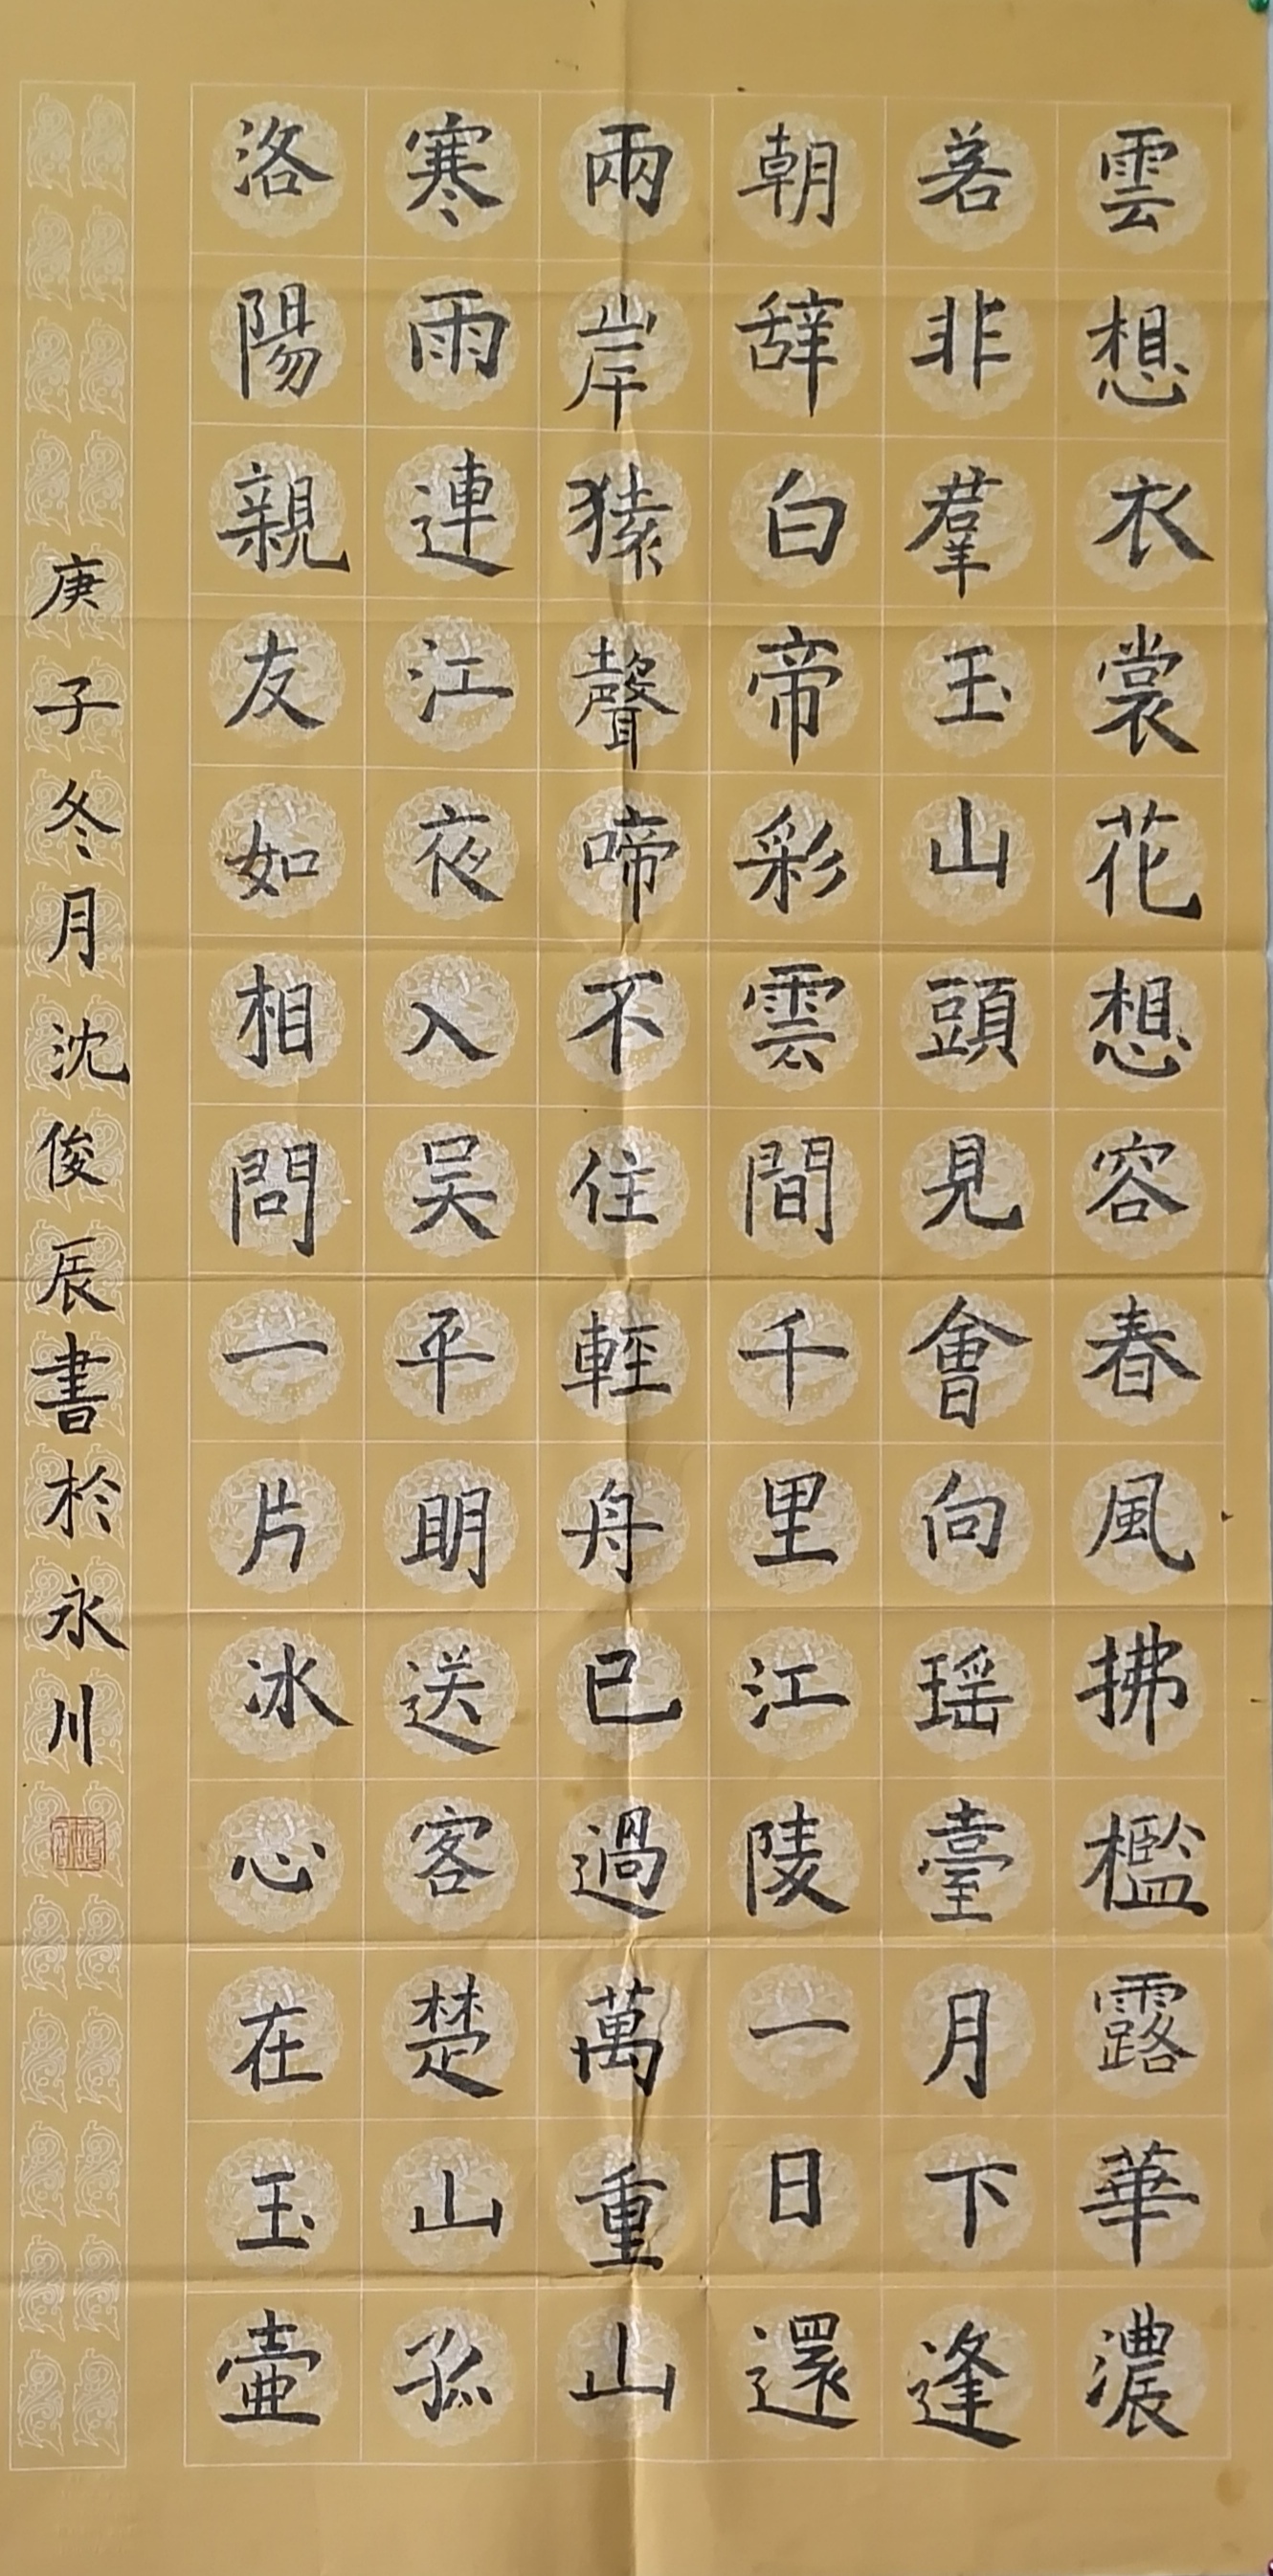 雲想衣裳花想容春風拂檻露華濃
若非羣玉山頭見會向瑶臺月下逢
朝辭白帝彩雲間千里江陵一日還
兩岸猿聲啼不住輕舟已過萬重山
寒雨連江夜入吴平明送客楚山孤
洛陽親友如相問一片冰心在玉壺
庚子冬月沈俊辰書於永川